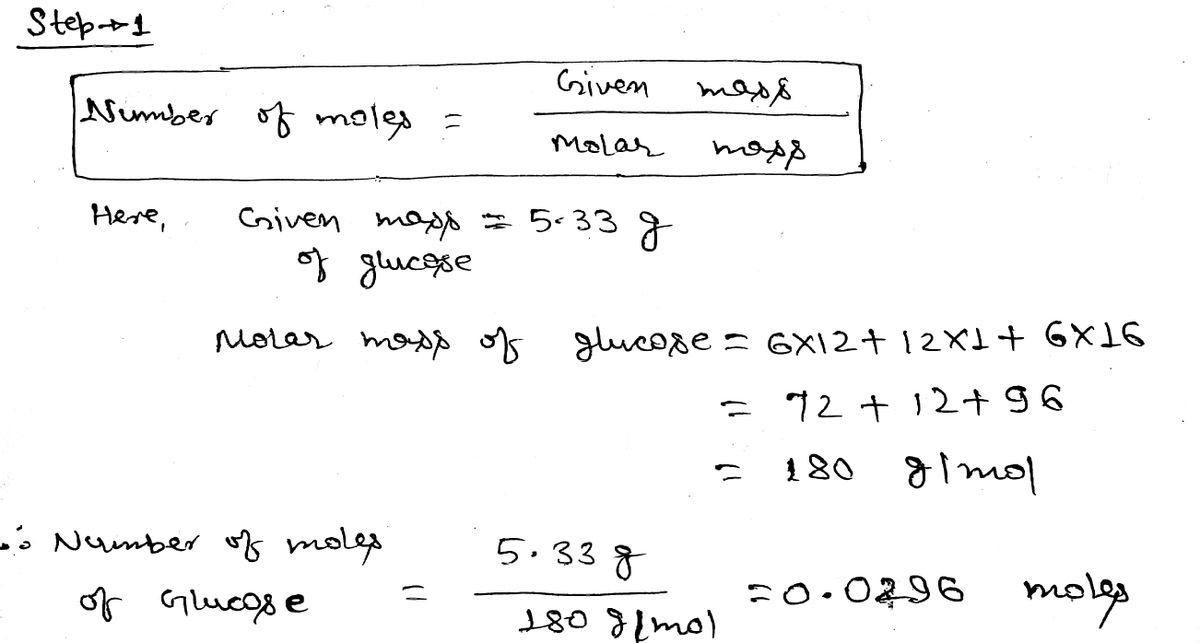 Step→1
Number of moles = Given mass / Molar mass
Here, Given mass = 5.33 g
of glucose
Molar mass of glucose = 6×12 + 12×1 + 6×16
= 72 + 12 + 96
= 180 g/mol
∴ Number of moles
of Glucose = 5.33 g / 180 g/mol = 0.0296 moles